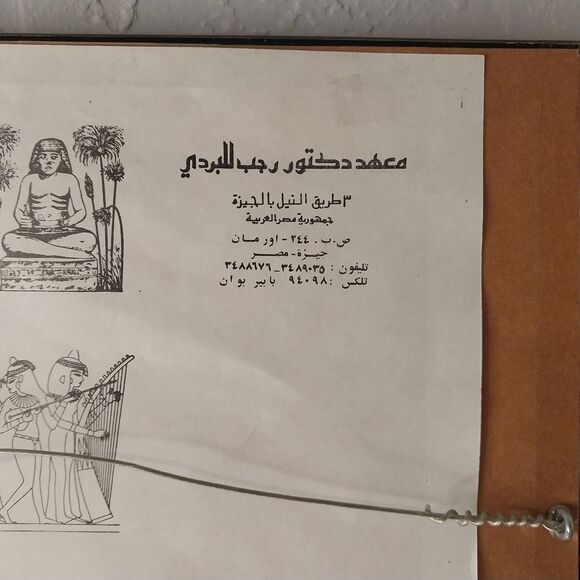 معهد دكتور رجب للبردي
٣ طريق النيل بالجيزة
جمهورية مصر العربية
ص.ب. ٢٤٤ - اورمان
جيزة - مصر
تليفون : ٣٤٨٩٠٣٥ - ٣٤٨٨٦٧٦
تلكس : ٩٤٠٩٨ بابير يوان